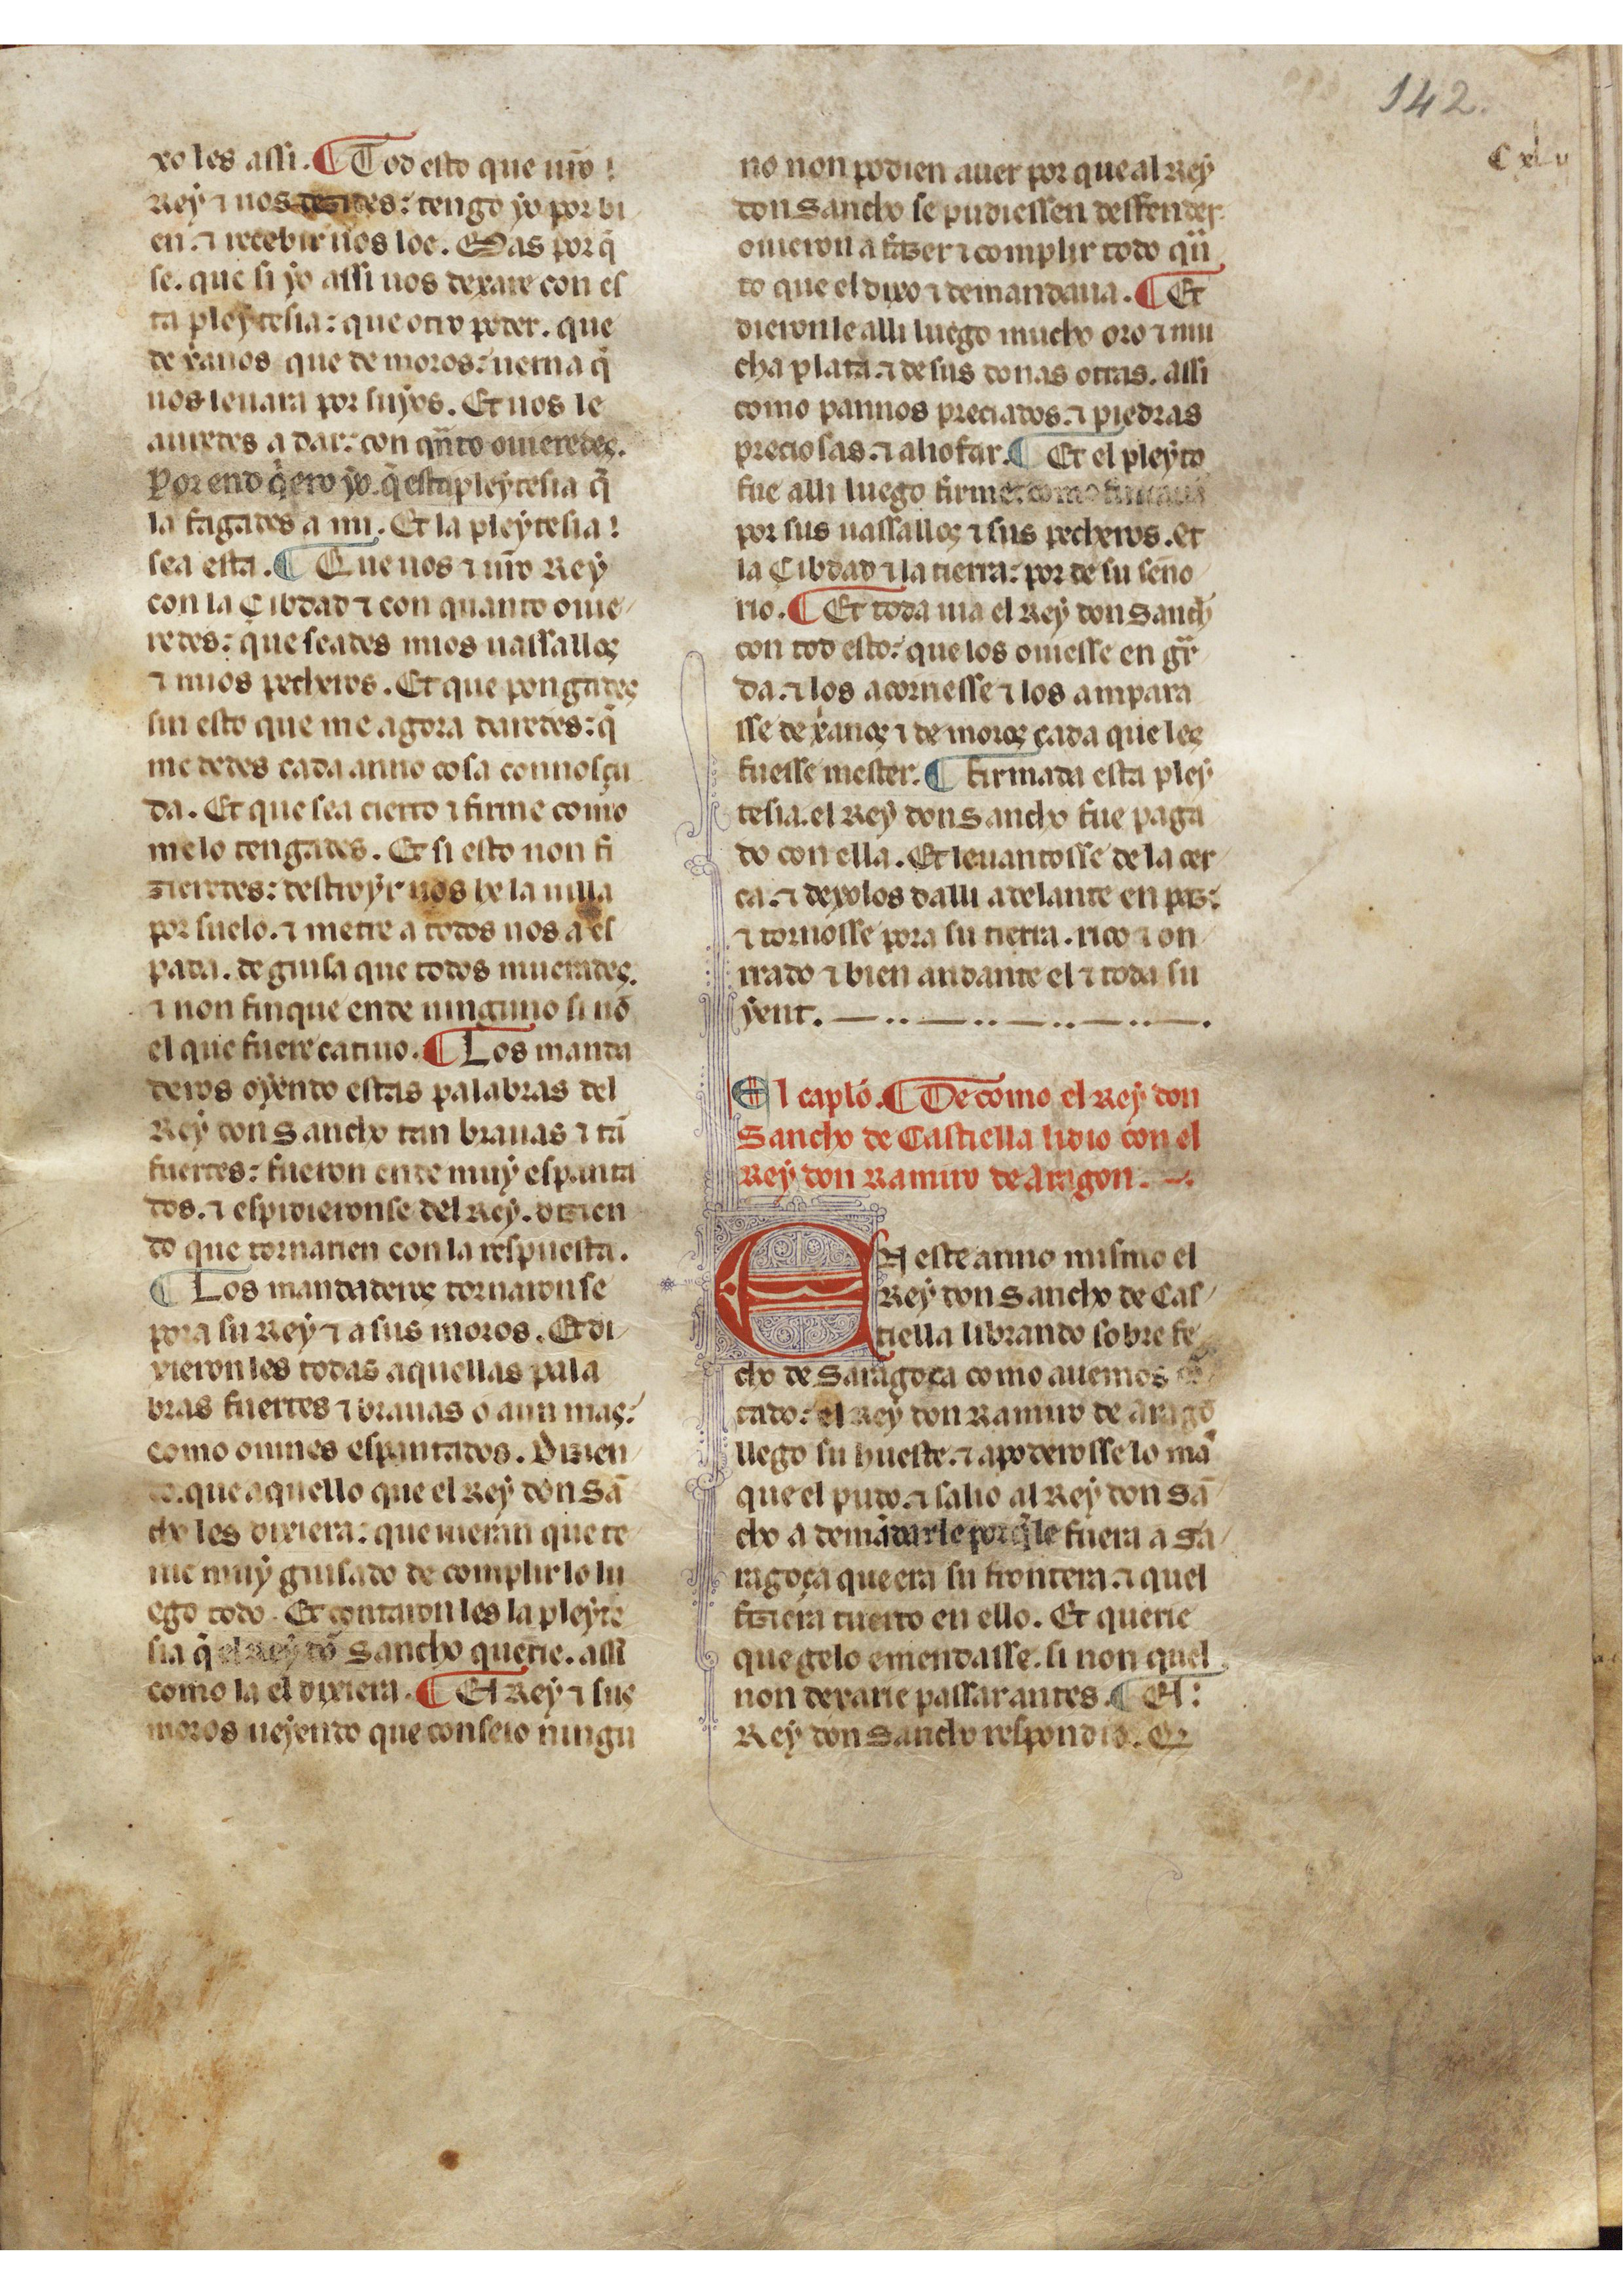 142.
C xl v
xo les assi. ¶ Tod esto que ur̃o
Rey ⁊ uos dezides: tengo yo por bi
en. ⁊ recebir uos loe. Mas por q̃
se. que si yo assi uos dexare con es
ta pleytesia: que otro poder. que
de x̃anos que de moros: uerna q̃
uos leuara por suyos. Et uos le
auredes a dar: con qñto ouieredes.
Por end q̃ero yo. q̃ esta pleytesia q̃
la fagades a mi. Et la pleytesia
sea esta. ¶ Que uos ⁊ ur̃o Rey
con la Çibdad ⁊ con quanto ouie
redes: que seades mios uassallos
⁊ mios pecheros. Et que pongades
sin esto que me agora daredes: q̃
me dedes cada anno cosa connosçu
da. Et que sea cierto ⁊ firme como
melo tengades. Et si esto non fi
zieredes: destroyr uos he la uilla
por suelo. ⁊ metre a todos uos a es
pada. de guisa que todos murades.
⁊ non finque ende ninguno si nõ
el que fuere catiuo. ¶ Los manda
deros oyendo estas palabras del
Rey don Sancho tan brauas ⁊ tã
fuertes: fueron ende muy espanta
dos. ⁊ espidieronse del Rey. dizien
do que tornarien con la respuesta.
¶ Los mandaderos tornaronse
pora su Rey ⁊ a sus moros. Et di
xieron les todas aquellas pala
bras fuertes ⁊ brauas o aun mas:
como omnes espantados. Dizien
do. que aquello que el Rey don Sã
cho les dixiera: que uieran que te
nie muy guisado de complir lo lu
ego todo. Et contaron les la pleyte
sia q̃ el Rey dõ Sancho querie. assi
como la el dixiera. ¶ El Rey ⁊ sus
moros ueyendo que conseio ningu
no non podien auer por que al Rey
don Sancho se pudiessen deffender
ouieron a fazer ⁊ complir todo qũ
to que el dixo ⁊ demandaua. ¶ Et
dieronle alli luego mucho oro ⁊ mu
cha plata. ⁊ de sus donas otras. assi
como pannos preciados. ⁊ piedras
preciosas. ⁊ aliofar. ¶ Et el pleyto
fue alli luego firme. como fincaua
por sus uassallos ⁊ sus pecheros. et
la Çibdad ⁊ la tierra: por de su seño
rio. ¶ Et toda uia el Rey don Sanch
con tod esto: que los ouiesse en gr̃
da. ⁊ los acorriesse ⁊ los ampara
sse de x̃anos ⁊ de moros cada que les
fuesse mester. ¶ Firmada esta pley
tesia. el Rey don Sancho fue paga
do con ella. Et leuantosse de la cer
ca. ⁊ dexolos dalli adelante en paz:
⁊ tornosse pora su tierra. rico ⁊ on
rrado ⁊ bien andante el ⁊ toda su
yent.
El caplo. ¶ De como el Rey don
Sancho de Castiella lidio con el
Rey don Ramiro de Aragon.
En este anno mismo el
Rey don Sancho de Cas
tiella librando sobre fe
cho de Saragoça como auemos
tado: el Rey don Ramiro de Aragõ
llego su hueste. ⁊ apoderosse lo mas
que el pudo. ⁊ salio al Rey don Sã
cho a demãdarle por q̃ le fuera a Sa
ragoça que era su frontera. ⁊ quel
fiziera tuerto en ello. Et querie
que gelo emendasse. si non quel
non dexarie passar antes. ¶ El
Rey don Sancho respondio. Et